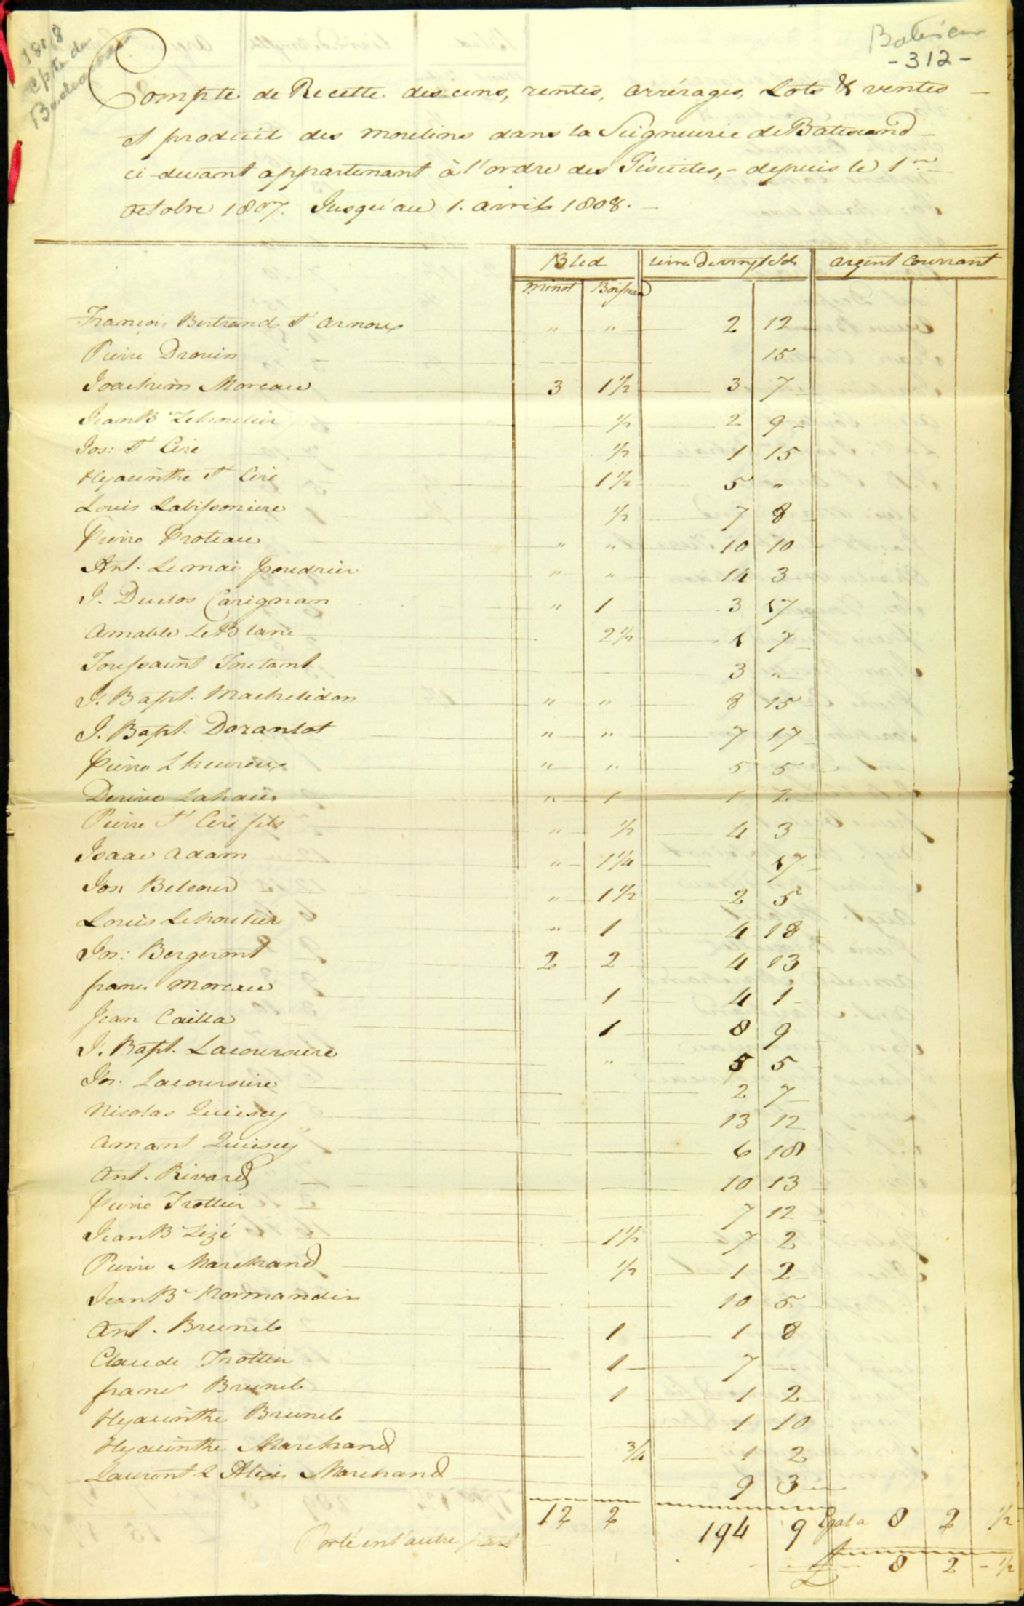 1808
cpte de
Batiscan
- 312 -
Compte de Recette des cens, rentes, arrérages, Lots & ventes
et produit des moulins dans la Seigneurie de Batiscand
ci-devant appartenant à l'ordre des Jésuites,- depuis le 1er
octobre 1807. Jusqu'au 1. avril 1808.-
Bled livres de vingt sols argent Courrant
minot Boisseau
Francois Bertrand St arnour " " 2 12
Pierre Drouin 15
Joachim Moreau 3 1½ 3 7
Jean B Lehoulier ½ 2 9
Jos: St Ciré ½ 1 15
Hyacinthe St Ciré 1½ 5 "
Louis Labissoniere ½ 7 8
Pierre Proteau " " 10 10
Ant. Lemai Poudrier " " 14 3
J. Duclos Carignan " 1 3 17
Amable LeBlanc 2½ 1 7
Toussaint Toutant 3 "
J. Bapt. Machelidon " " 8 15
J. Bapt. Dorantot " " 7 17
Pierre Lheureux " " 5 5
Lahaie " 1 1 2
Pierre St Ciré fils " ½ 4 3
Isaac Adam " 1¼ 17
Jos Belcour " 1½ 2 5
Louis Lehoulier " 1 4 18
Jos: Bergeront 2 2 4 13
franc Moreau 1 4 1
Jean Cailla 1 8 9
J. Bapt. Lacoursiere " 5 5
Jos. Lacoursiere 2 7
Nicolas Quiesey 13 12
Amant Quiesey 6 18
Ant. Rivard 10 13
Pierre Trottier 7 12
Jean B Lizé 1½ 7 2
Pierre Marchand ½ 1 2
Jean Bte Normandin 10 5
Ant. Brunel 1 1 8
Claude Trottier 1 7 -
francs Brunel 1 1 2
Hyacinthe Brunel 1 10
Hyacinthe Marchand ¾ 1 2
Laurent & Alexis Marchand 9 3
12 2 194 9 Egal a 8 2 ½
Porté en l'autre part £ 8 2 - ½